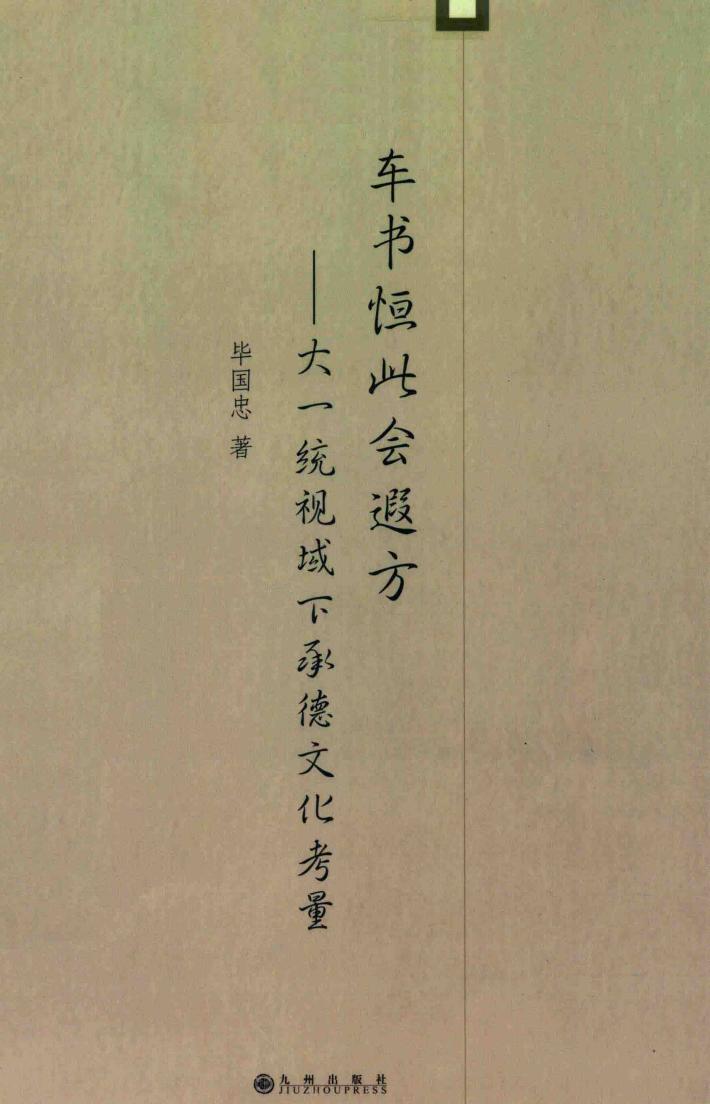 车书恒此会遐方
——大一统视域下承德文化考量
毕国忠 著
九州出版社
JIUZHOUPRESS